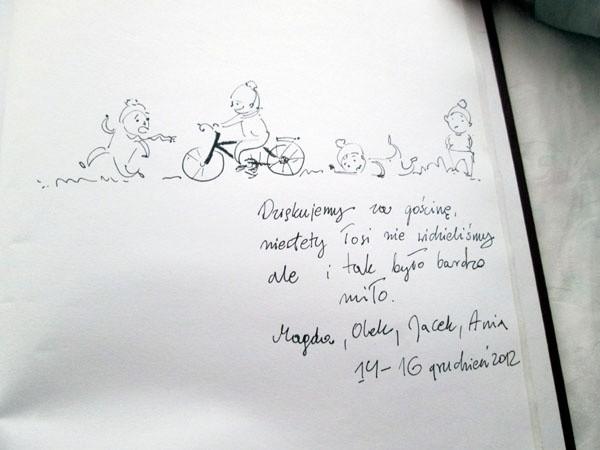 Dziękujemy za gościnę,
niestety łosi nie widzieliśmy
ale i tak było bardzo
miło.
Magda, Olek, Jacek, Ania
14-16 grudzień 2012